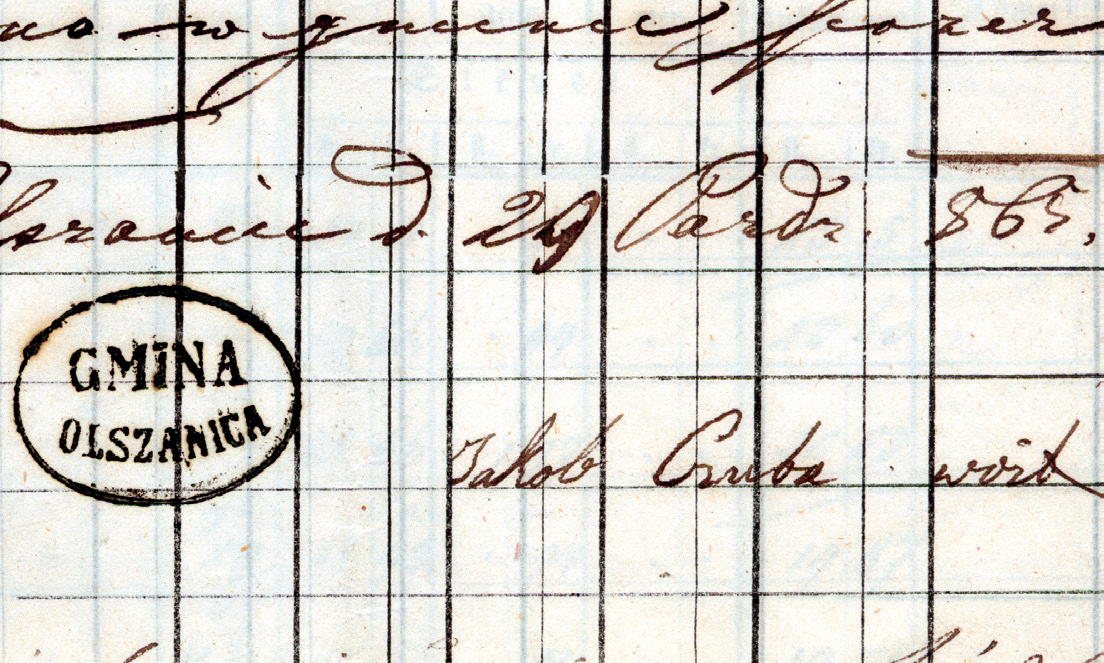 no w gminie
lszanicie d. 29 Paźdz. 865.
GMINA
OLSZANICA
Jakob Czuba wóit